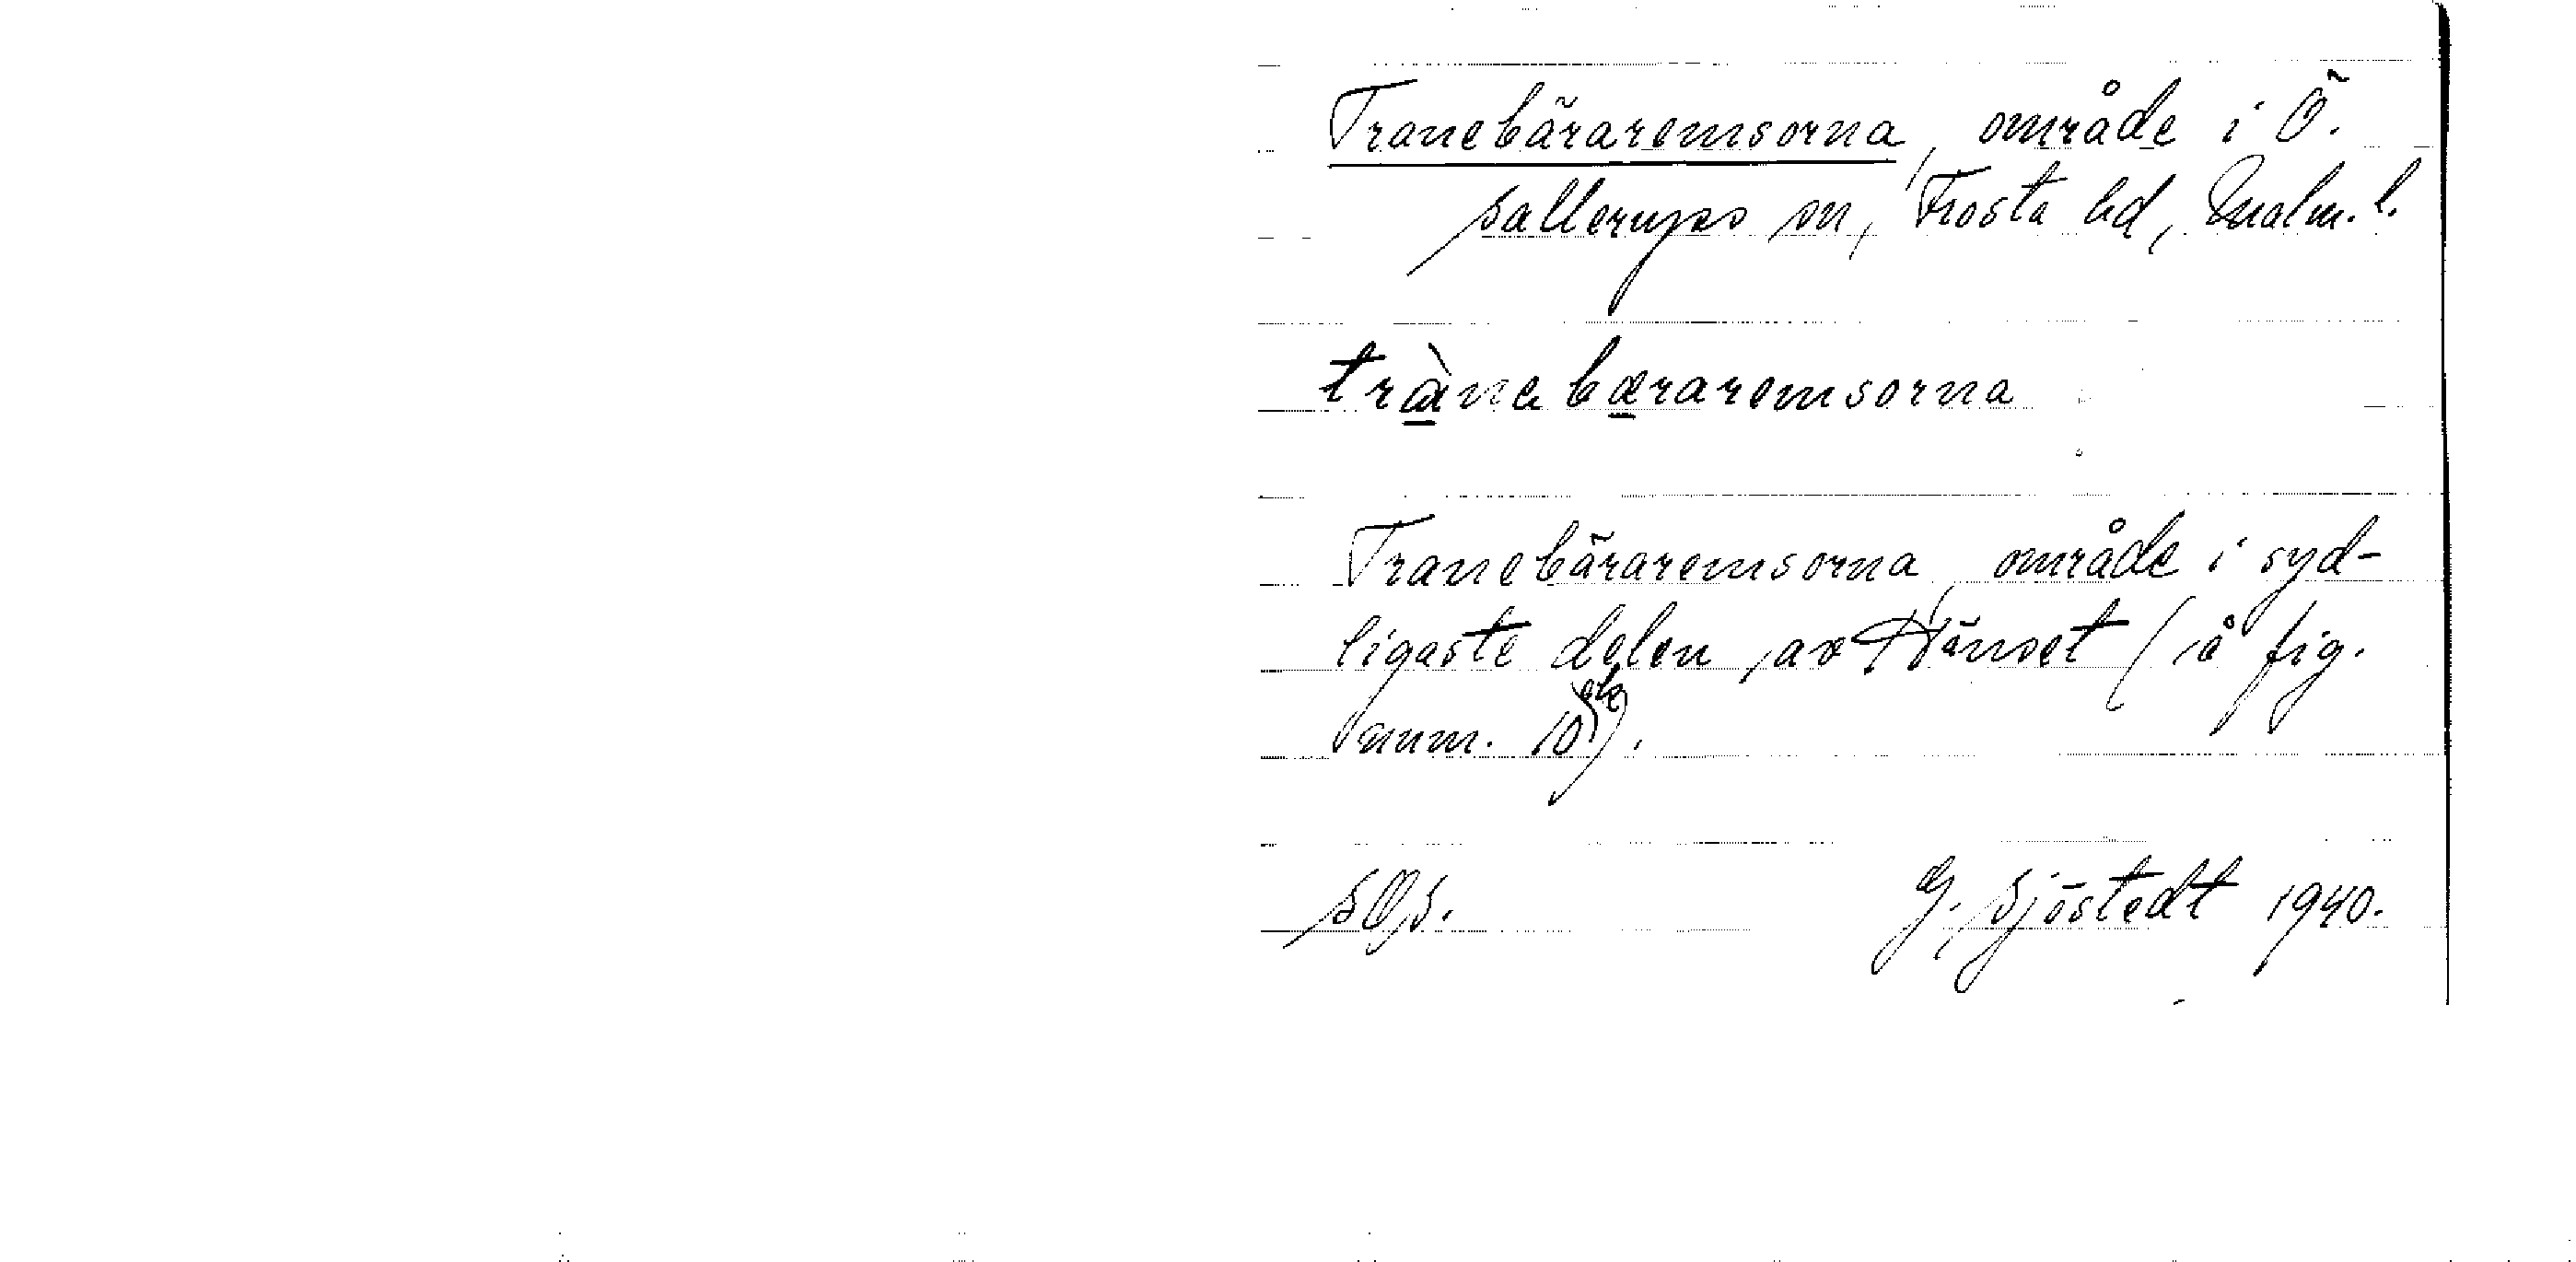 Tranebäraremsorna, område i Ö.
Sallerups sn, Frosta hd, Malm. l.
trànebæraremsorna
Tranebäraremsorna, område i syd-
ligaste delen av (å fig.
num. 10).
SOS. G. Sjöstedt 1940.